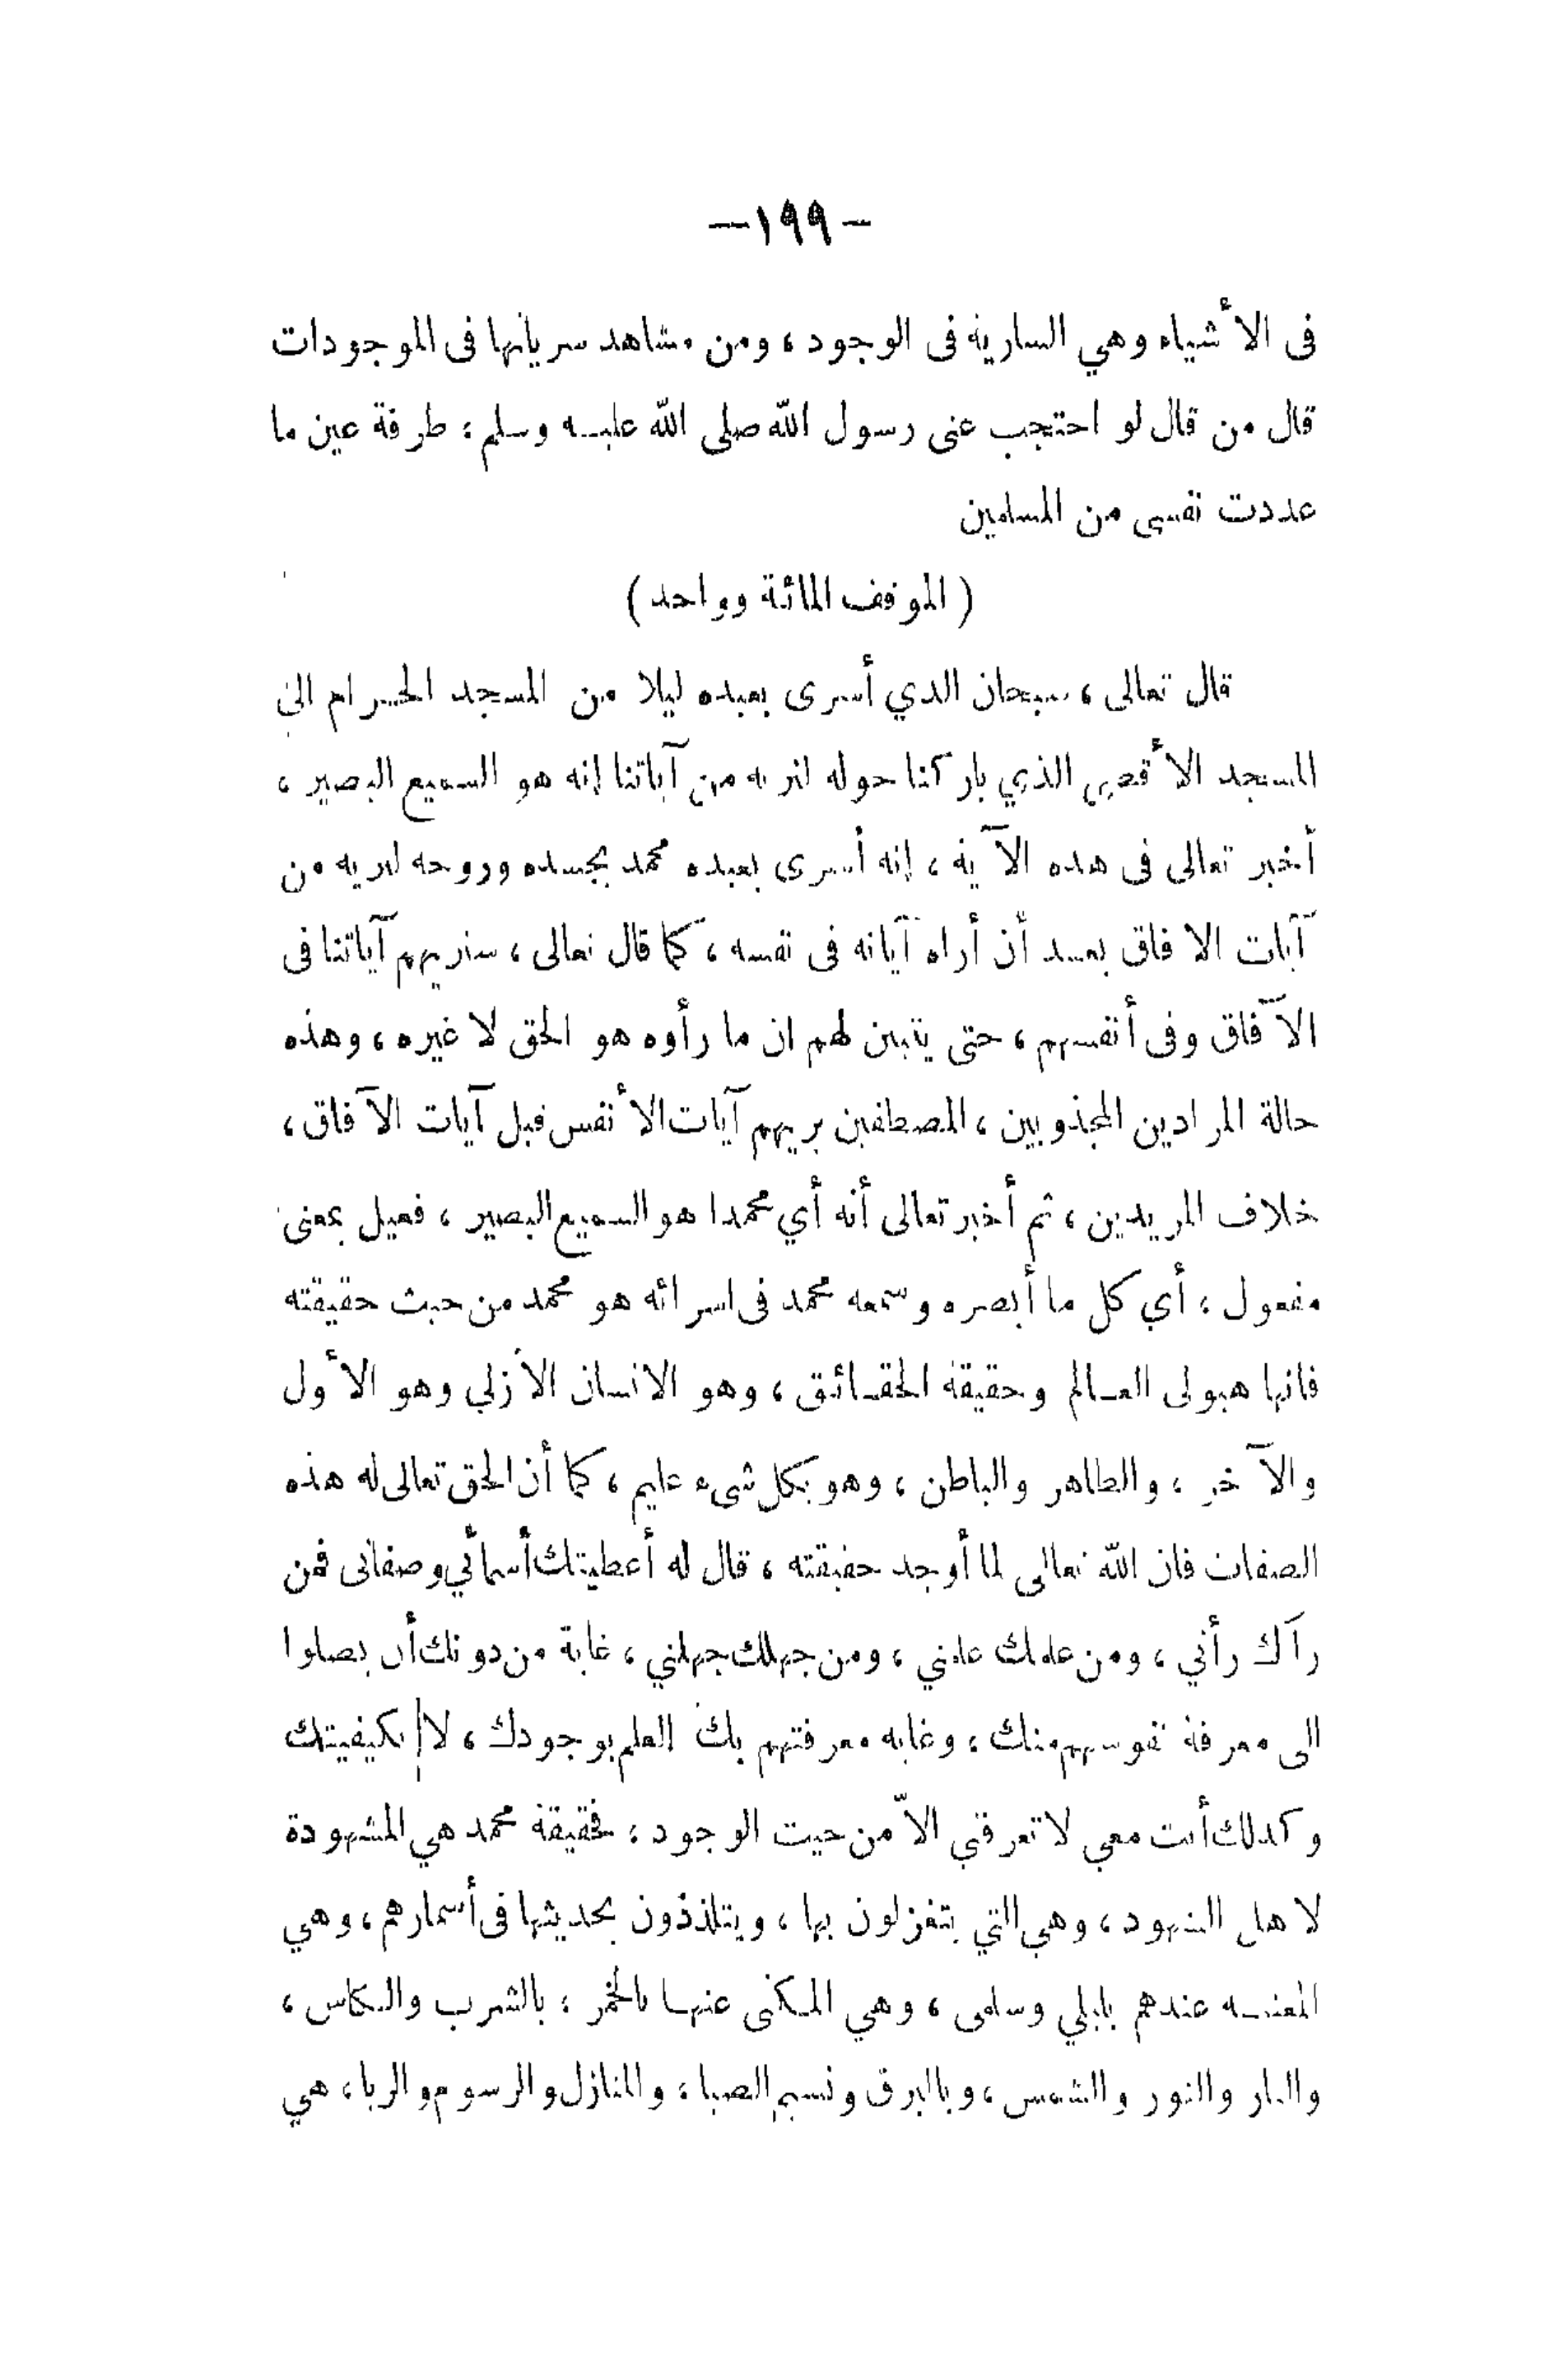 —١٩٩—
فى الأشياء وهي السارية فى الوجود ، ومن مشاهد سريانها فى الموجودات
قال من قال لو احتجب عنى رسول الله صلى الله عليه وسلم ؛ طرفة عين ما
عددت نفسى من المسلمين
( الموقف المائة وواحد )
قال تعالى ، سبحان الذي أسرى بعبده ليلا من المسجد الحرام الى
المسجد الأقصى الذي باركنا حوله لنريه من آياتنا إنه هو السميع البصير ،
أخبر تعالى فى هذه الآية ، إنه أسرى بعبده محمد بجسده وروحه لنريه من
آيات الافاق بعد أن أراه آياته فى نفسه ، كما قال تعالى ، سنريهم آياتنا فى
الآفاق وفى أنفسهم ، حتى يتبين لهم ان ما رأوه هو الحق لا غيره ، وهذه
حالة المرادين المجذوبين ، المصطفين يريهم آيات الأنفس قبل آيات الآفاق ،
خلاف المريدين ، ثم أخبر تعالى أنه أي محمدا هو السميع البصير ، فعيل بمعنى
مفعول ، أي كل ما أبصره وسمعه محمد فى اسرائه هو محمد من حيث حقيقته
فانها هيولى العالم وحقيقة الحقائق ، وهو الانسان الأزلي وهو الأول
والآخر ، والظاهر والباطن ، وهو بكل شىء عليم ، كما أن الحق تعالى له هذه
الصفات فان الله تعالى لما أوجد حقيقته ، قال له أعطيتك أسمائي وصفاتى فمن
رآك رأني ، ومن علمك علمني ، ومن جهلك جهلني ، غاية من دونك أن يصلوا
الى معرفة نفوسهم منك ، وغاية معرفتهم بك العلم بوجودك ، لا بكيفيتك
وكذلك أنت معي لا تعرفني الاّ من حيت الوجود ؛ فحقيقة محمد هي المشهودة
لاهل الشهود ، وهي التي يتغزلون بها ، ويتلذذون بحديثها فى أسمارهم ، وهي
عندهم بليلي وسلمى ، وهي المكنى عنها بالخمر ؛ بالشرب والكاس ،
والنار والنور والشمس ، وبالبرق ونسيم الصبا ، والمنازل والرسوم والربا ، هي